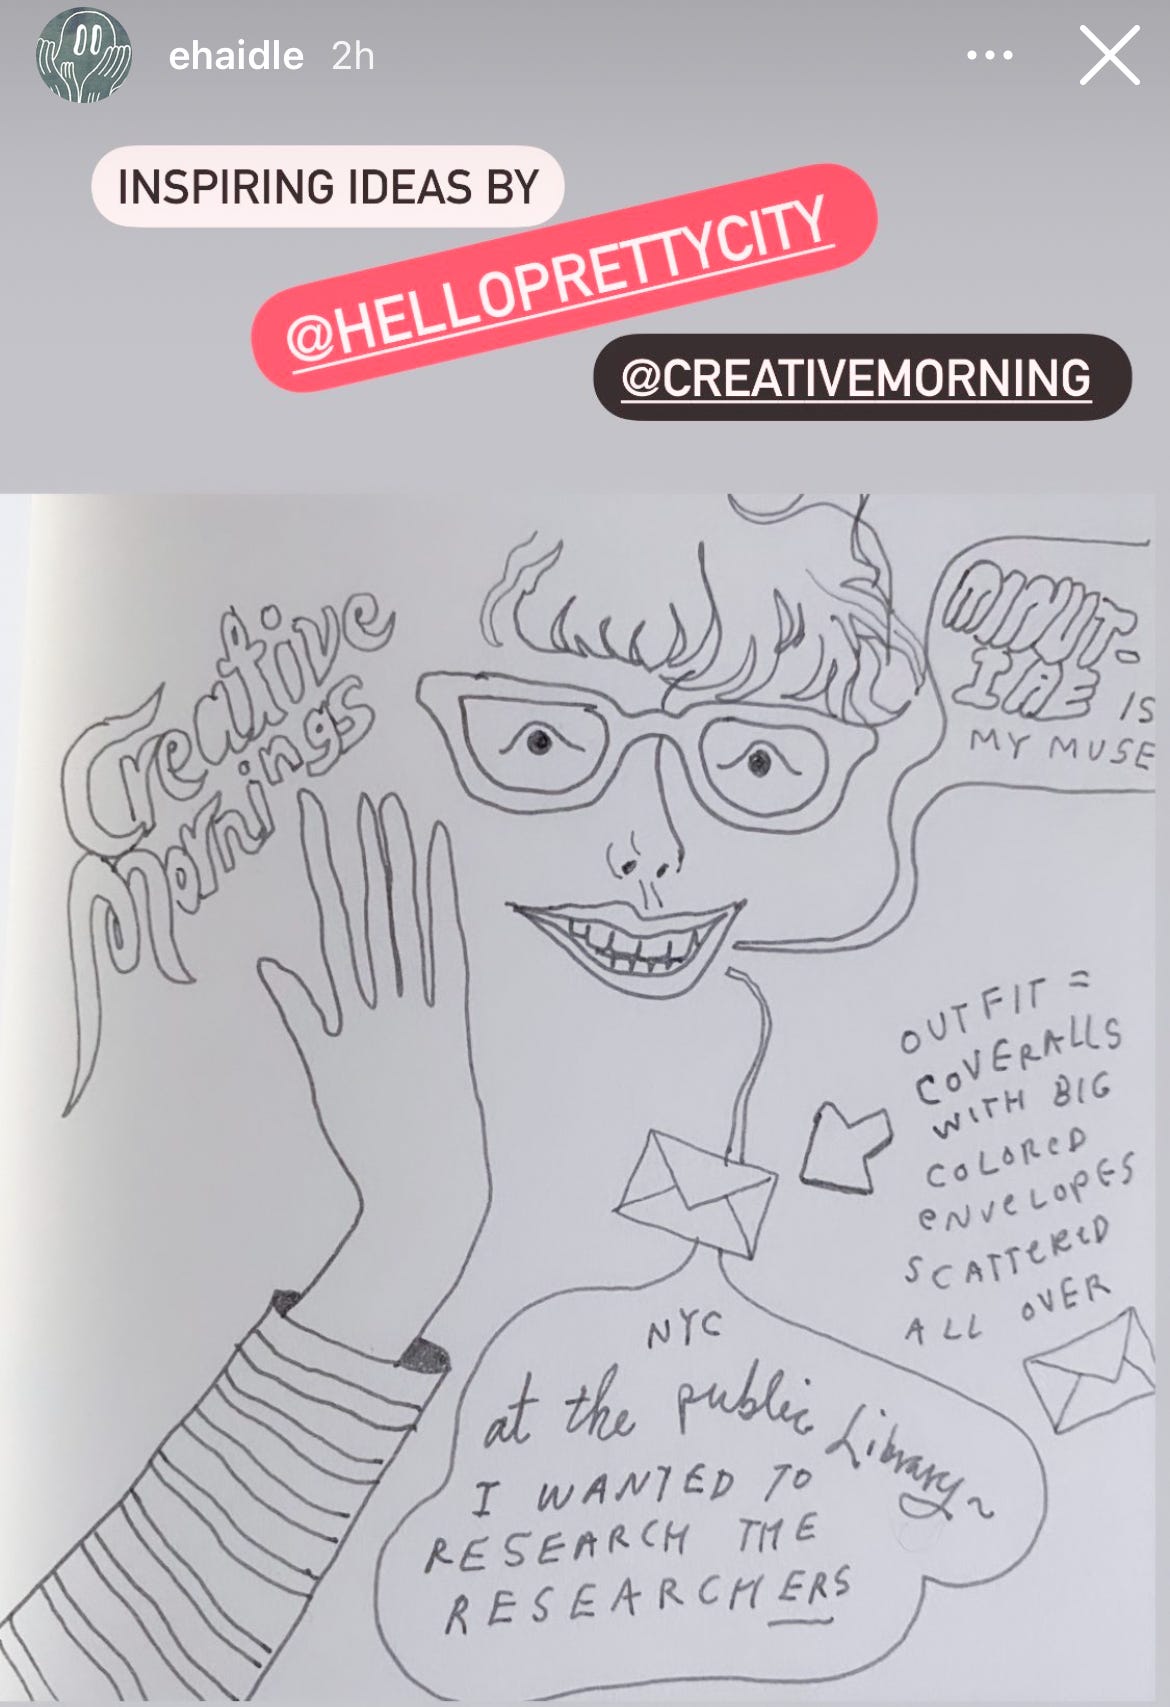 ehaidle 2h
INSPIRING IDEAS BY
@HELLOPRETTYCITY
@CREATIVEMORNING
Creative
Mornings
MINUT-
IAE IS
MY MUSE
OUTFIT =
COVERALLS
WITH BIG
COLORED
ENVELOPES
SCATTERED
ALL OVER
NYC
at the public Library,
I WANTED TO
RESEARCH THE
RESEARCHERS